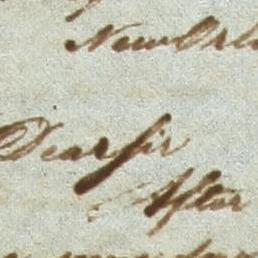 New Orl
Dear sir
After